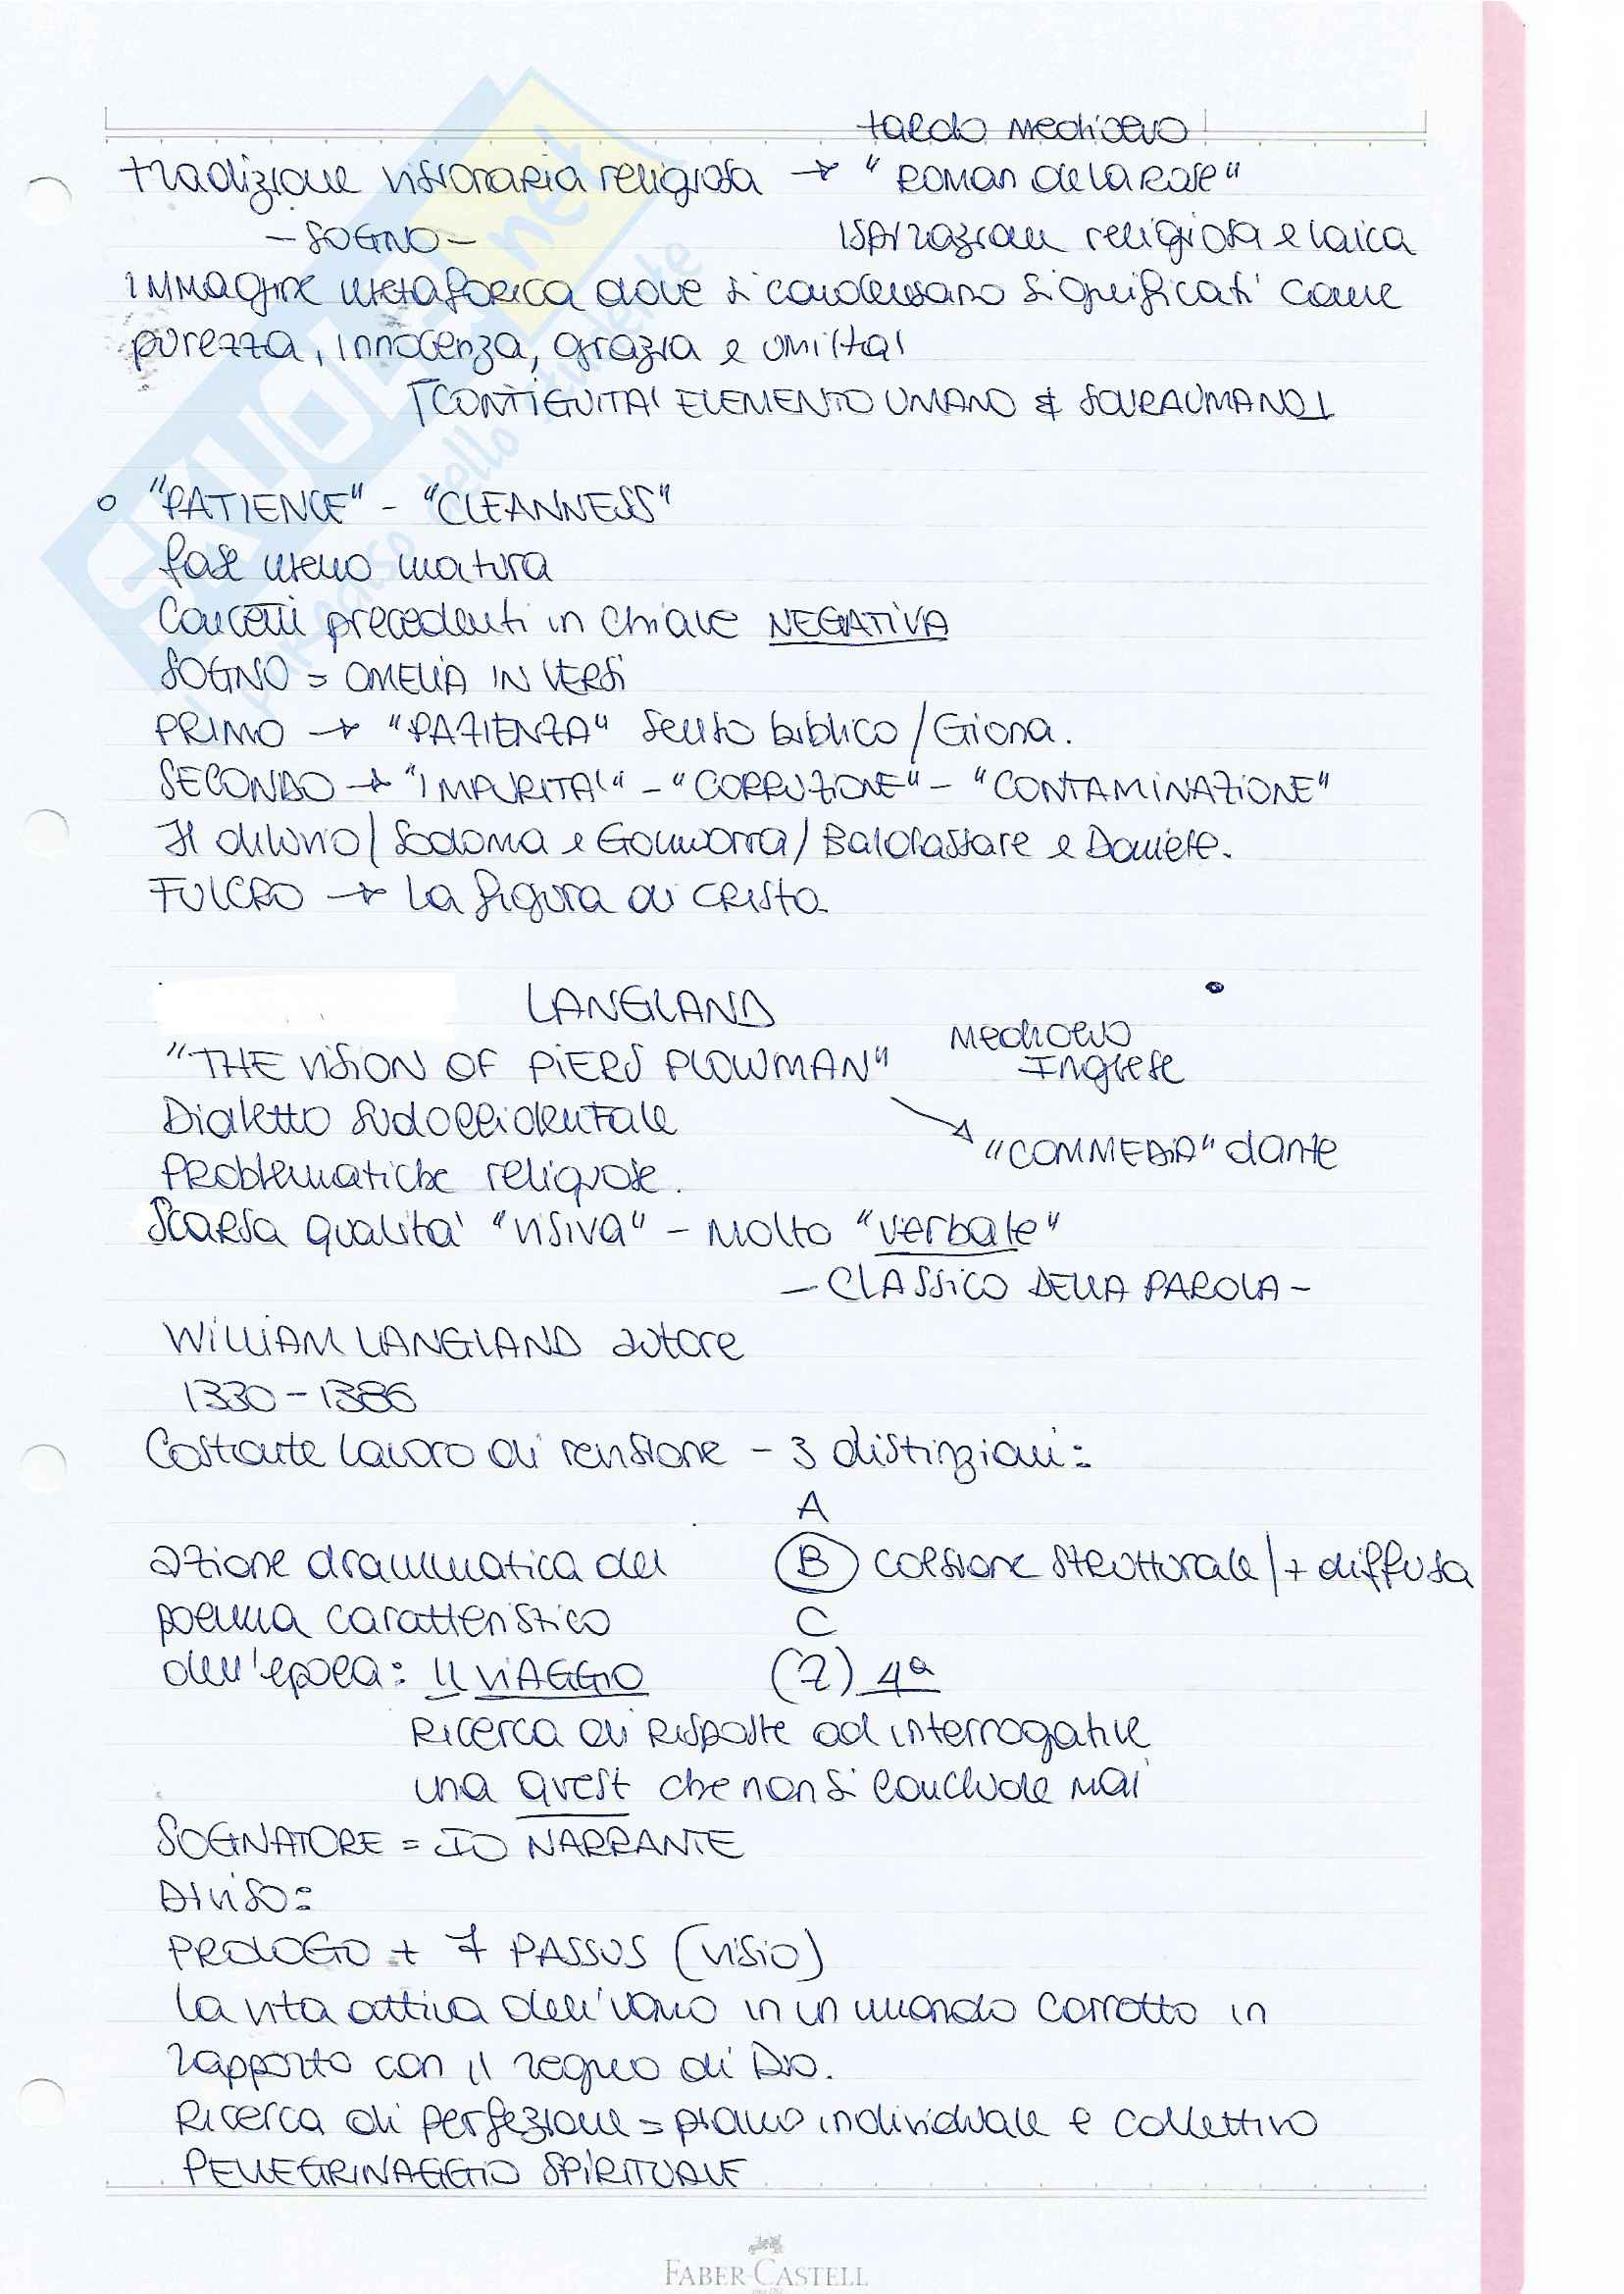 tardo medioevo
tradizione visionaria religiosa → "Roman de la Rose"
- SOGNO -
ispirazione religiosa e laica
immagine metaforica dove si condensano significati come
purezza, innocenza, grazia e umilta'
[CONTIGUITA' ELEMENTO UMANO & SOVRAUMANO]
o "PATIENCE" - "CLEANNESS"
fase meno matura
Concetti precedenti in chiave NEGATIVA
SOGNO = OMELIA IN VERSI
PRIMO → "PAZIENZA" senso biblico / Giona.
SECONDO → "IMPURITA'" - "CORRUZIONE" - "CONTAMINAZIONE"
Il diluvio / Sodoma e Gomorra / Baldassare e Daniele.
FULCRO → La figura di Cristo.
LANGLAND
Medioevo
Inglese
"THE VISION OF PIERS PLOWMAN"
Dialetto sudoccidentale
"COMMEDIA" dante
Problematiche religiose.
Scarsa qualita' "visiva" - Molto "verbale"
- CLASSICO DELLA PAROLA -
WILLIAM LANGLAND autore
1330 - 1386
Costante lavoro di revisione - 3 distinzioni:
A
azione drammatica del
B coesione strutturale / + diffusa
poema caratteristico
C
dell'epoca: il VIAGGIO
(Z) 4ª
Ricerca di risposte ad interrogative
una quest che non si conclude mai
SOGNATORE = IO NARRANTE
Diviso:
PROLOGO + 7 PASSUS (visio)
La vita attiva dell'uomo in un mondo corrotto in
rapporto con il regno di Dio.
Ricerca di perfezione = piano individuale e collettivo
PELLEGRINAGGIO SPIRITUALE
FABER-CASTELL
SKUOLA.net
il paradiso dello studente